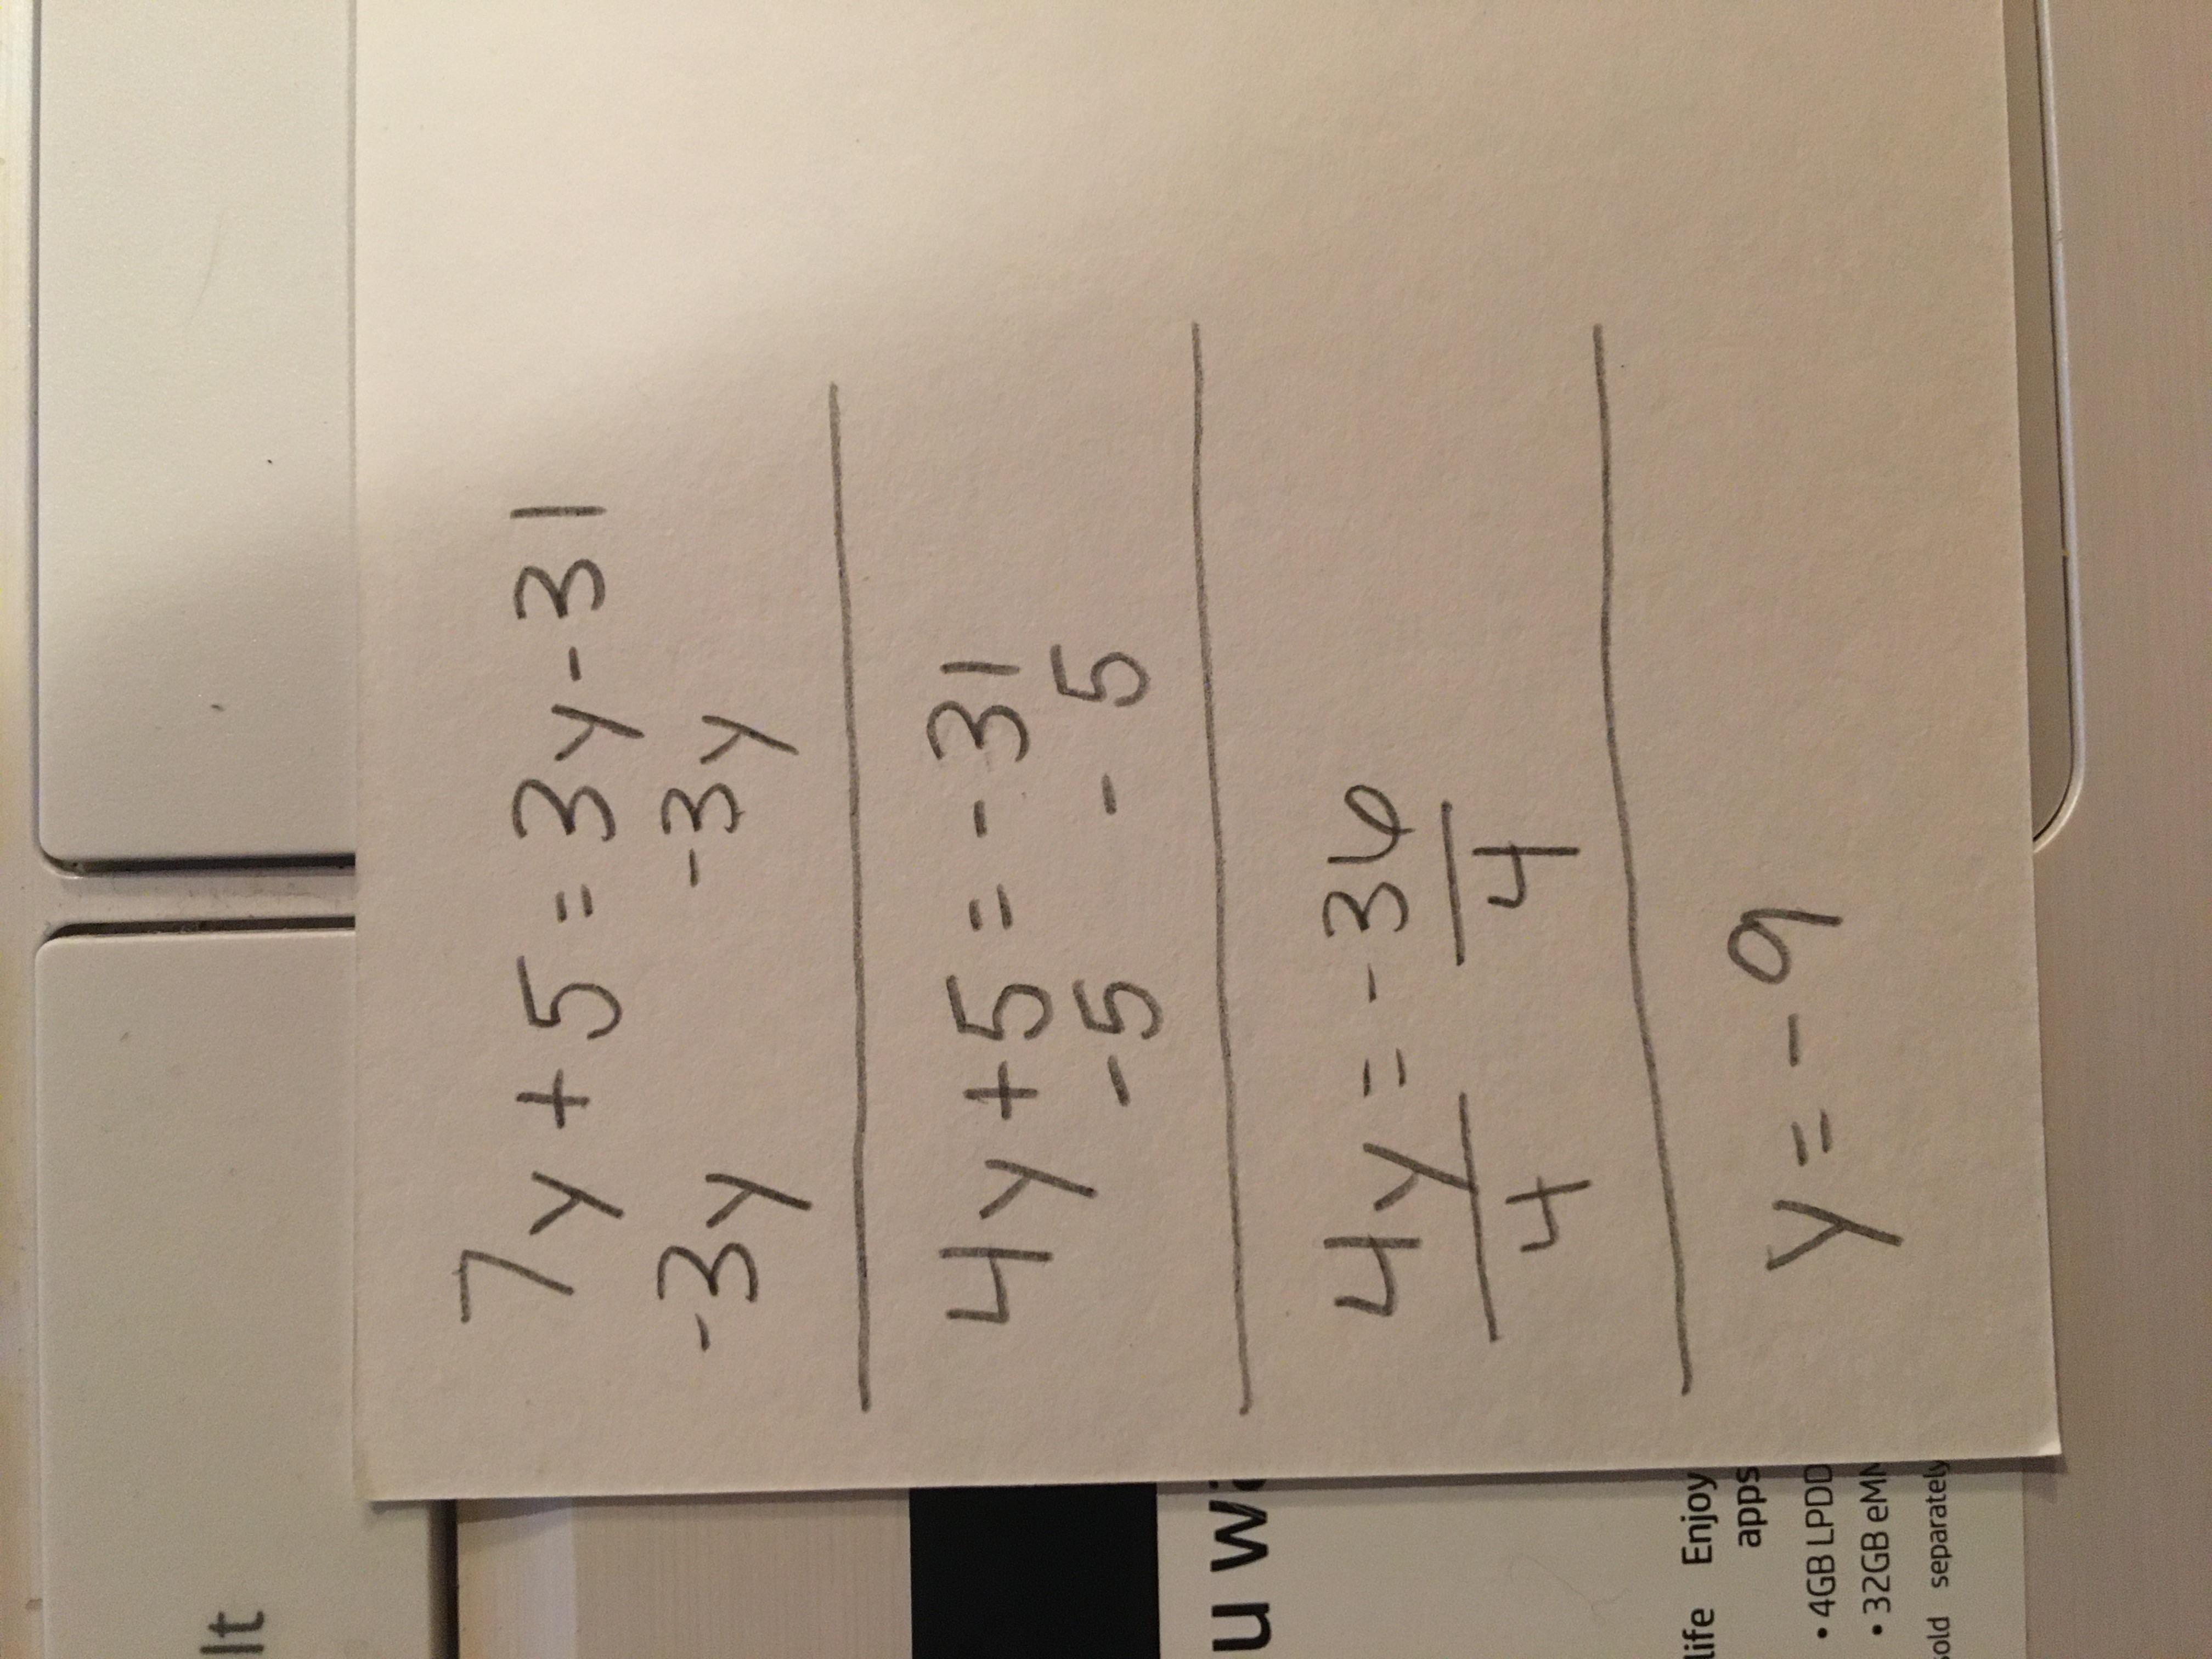 7y + 5 = 3y - 31
-3y -3y
4y + 5 = - 31
-5 - 5
4y = - 36
4 4
y = - 9
lt
u w
life Enjoy
apps
• 4GB LPDD
• 32GB eMM
sold separately